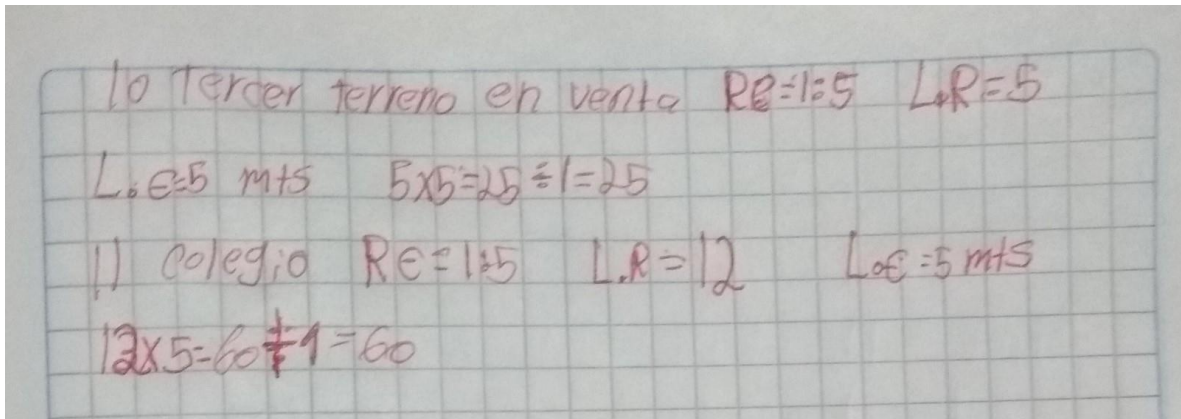 10 Tercer terreno en venta RE=1:5 L.R=5
L.E=5 mts 5x5=25÷1=25
11 colegio RE=1:5 L.R=12 L.E=5 mts
12x5=60÷1=60